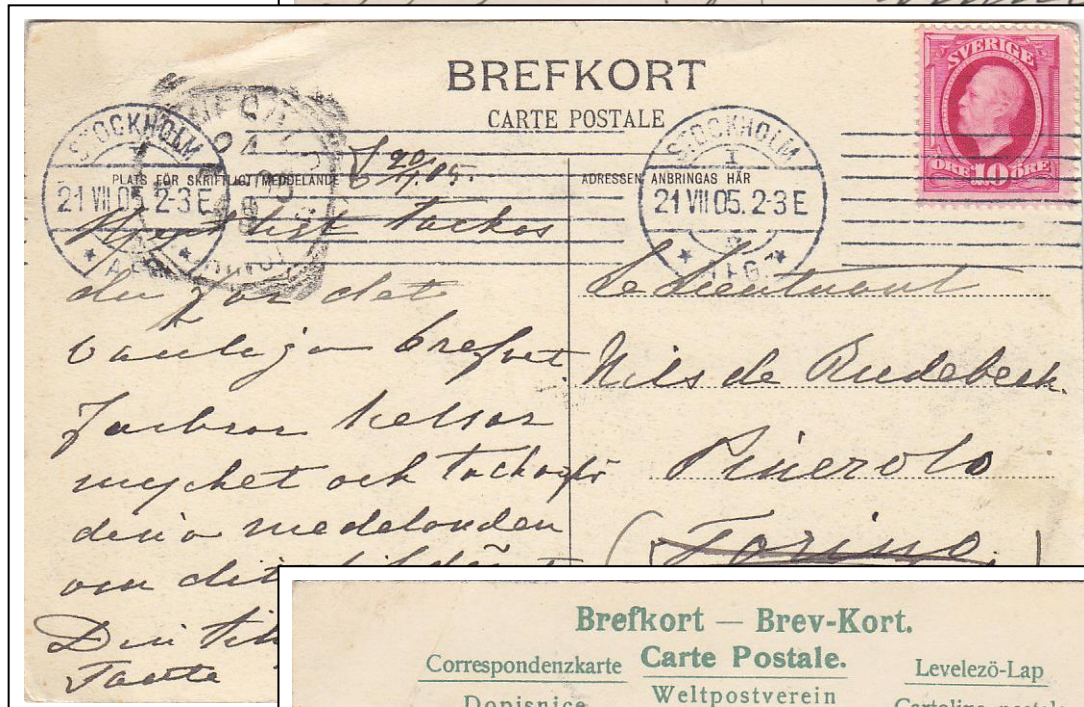 BREFKORT
CARTE POSTALE
SVERIGE
ÖRE 10 ÖRE
STOCKHOLM
1
21 VII 05. 2-3 E
STOCKHOLM
1
21 VII 05. 2-3 E
PLATS FÖR SKRIFTLIGT MEDDELANDE
ADRESSEN ANBRINGAS HÄR
20/7 05.
tackas
du för det
vänliga brefvet.
Farbror helsar
mycket och tackar för
dina medelanden
om dit
Din
Tante
Le Lieutnant
Nils de Rudebeck.
Pinerolo
(Torino.)
Brefkort — Brev-Kort.
Correspondenzkarte Carte Postale. Levelezö-Lap
Dopisnice Weltpostverein Cartolina postale